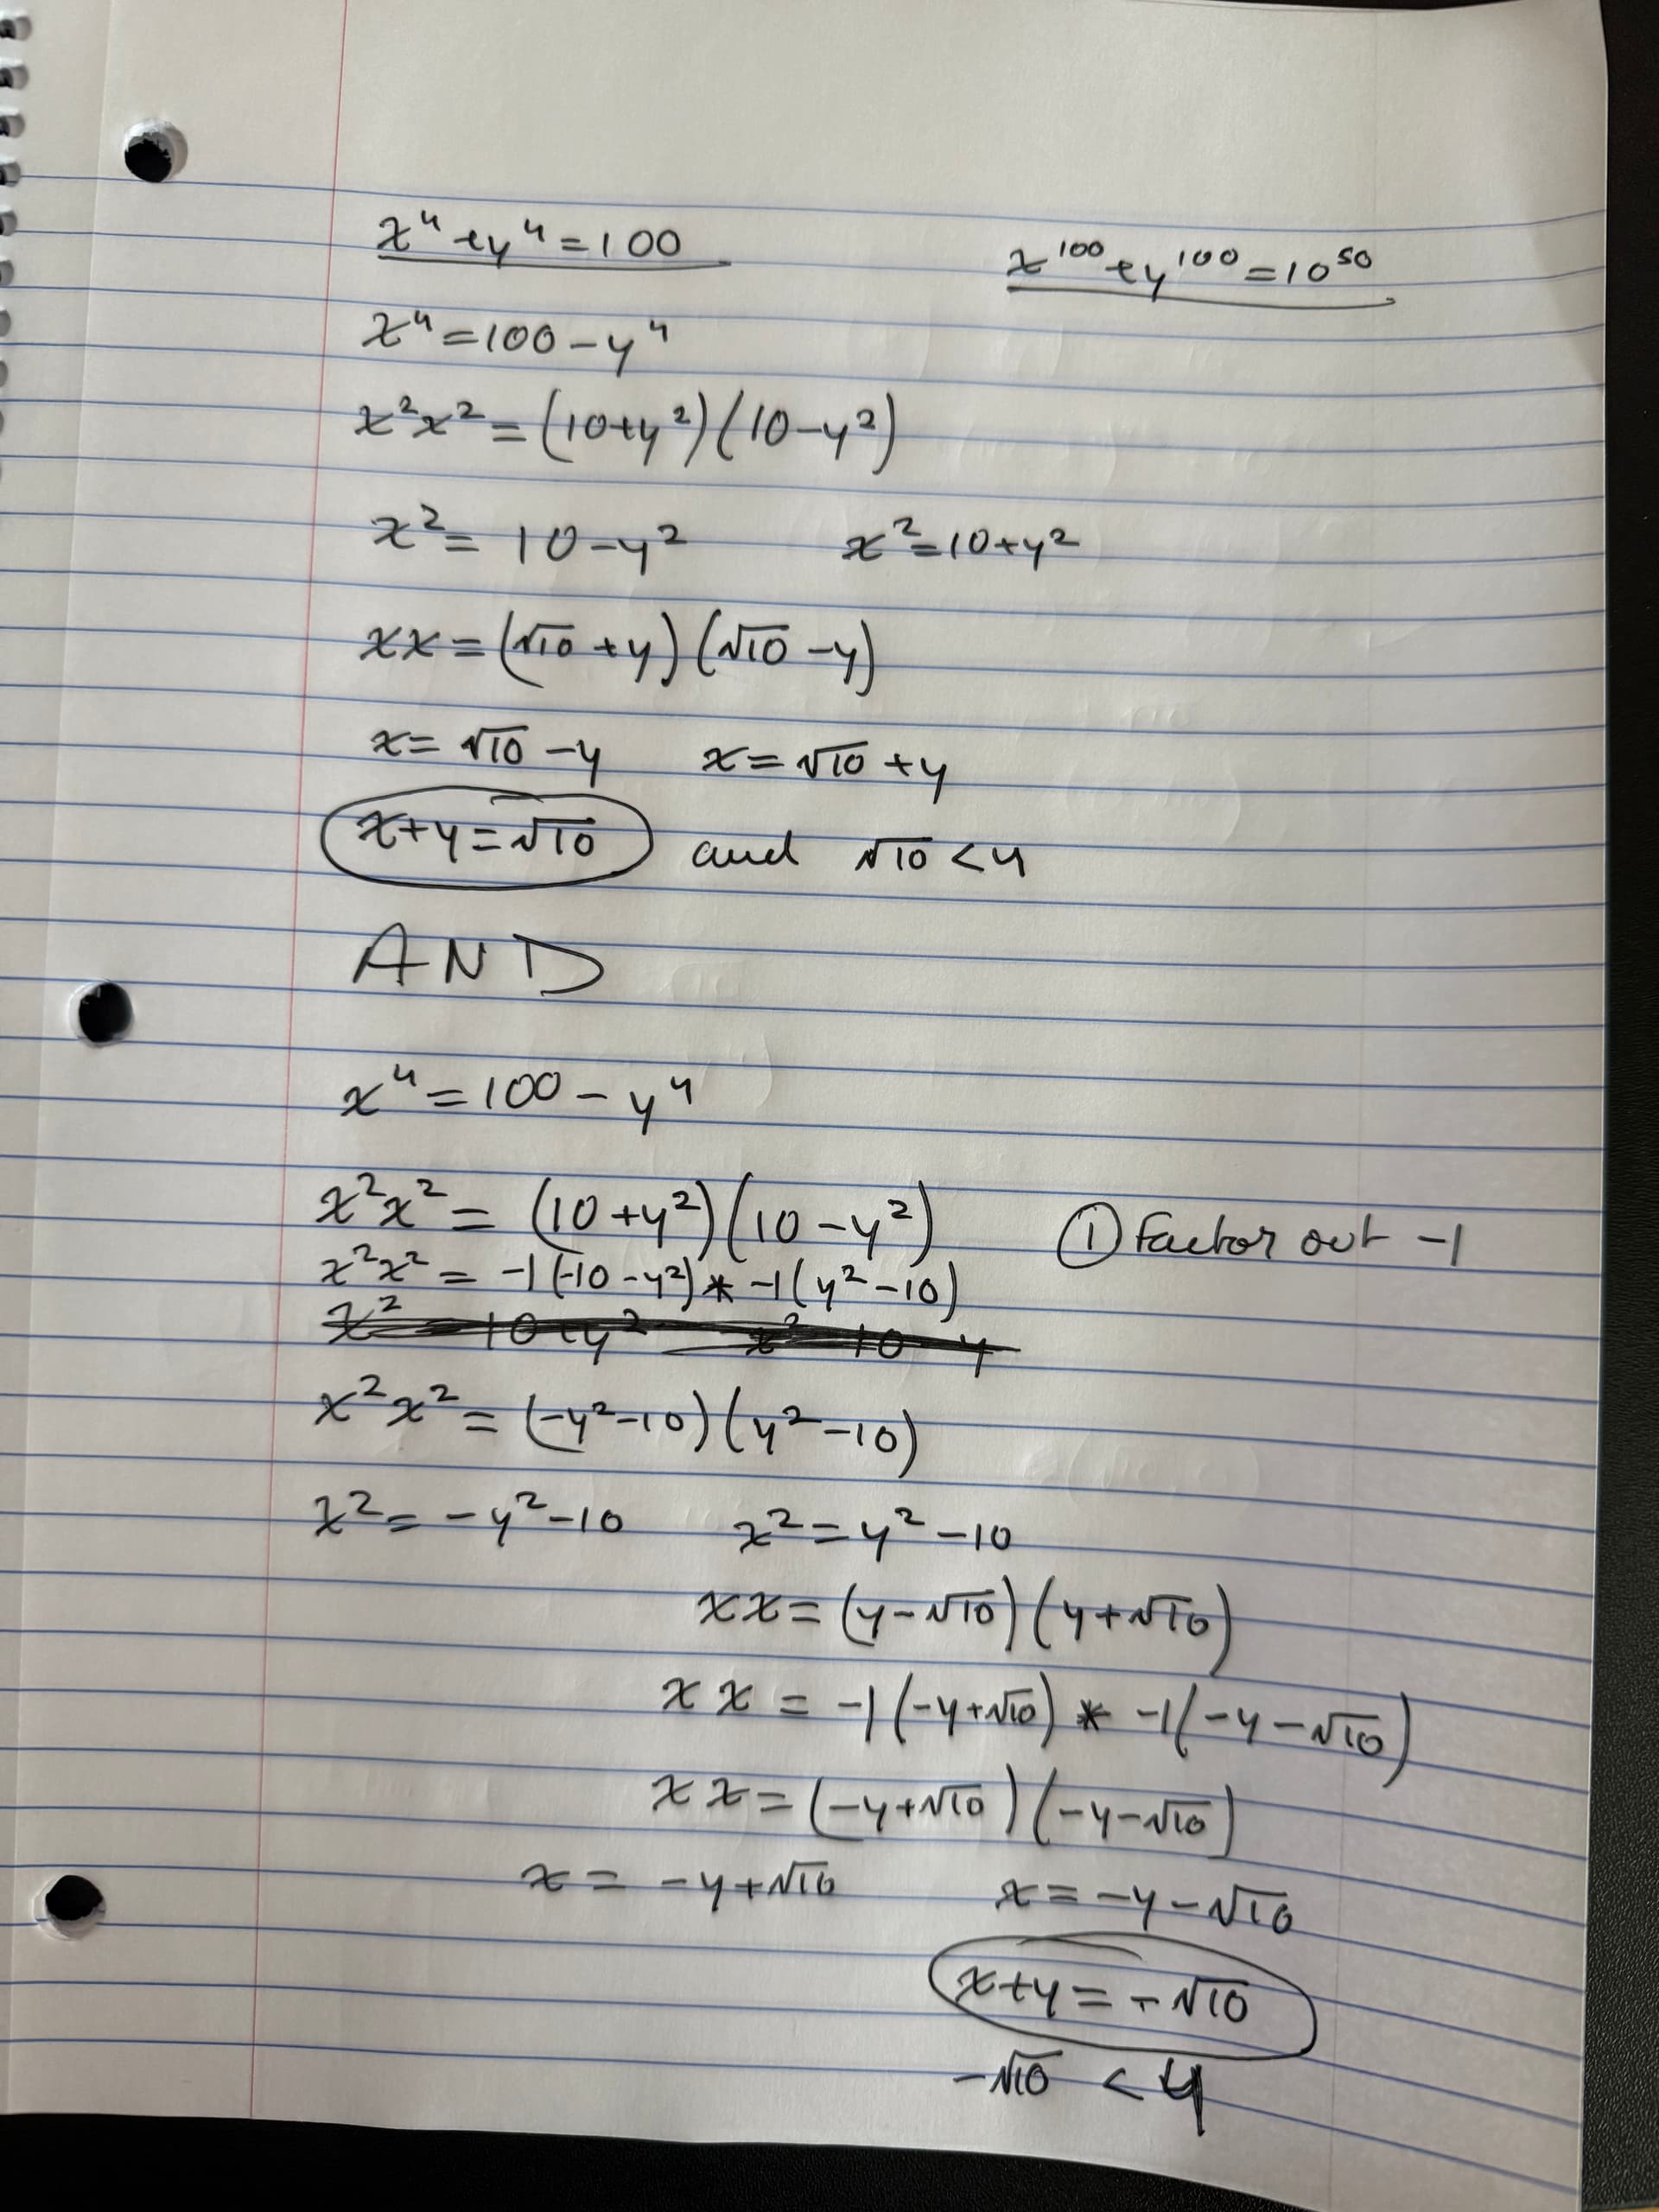 x⁴+y⁴=100
x¹⁰⁰+y¹⁰⁰=10⁵⁰
x⁴=100-y⁴
x²x²=(10+y²)(10-y²)
x²=10-y² x²=10+y²
xx=(√10+y)(√10-y)
x=√10-y x=√10+y
x+y=√10 and √10<4
AND
x⁴=100-y⁴
x²x²=(10+y²)(10-y²) ① Factor out -1
x²x²=-1(-10-y²)*-1(y²-10)
x²x²=(-y²-10)(y²-10)
x²=-y²-10 x²=y²-10
xx=(y-√10)(y+√10)
xx=-1(-y+√10)*-1(-y-√10)
xx=(-y+√10)(-y-√10)
x=-y+√10 x=-y-√10
x+y=-√10
-√10<4